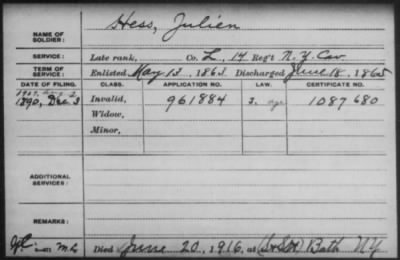 NAME OF SOLDIER: Hess, Julien
SERVICE: Late rank, Co. L, 14 Reg't N.Y. Cav.
TERM OF SERVICE: Enlisted May 13, 1863. Discharged June 18, 1865
DATE OF FILING. CLASS. APPLICATION NO. LAW. CERTIFICATE NO.
1907, Aug 2
1890, Dec 3 Invalid, 961884 1087680
Widow,
Minor,
ADDITIONAL SERVICES:
REMARKS:
Died June 20, 1916, at Bath N.Y.